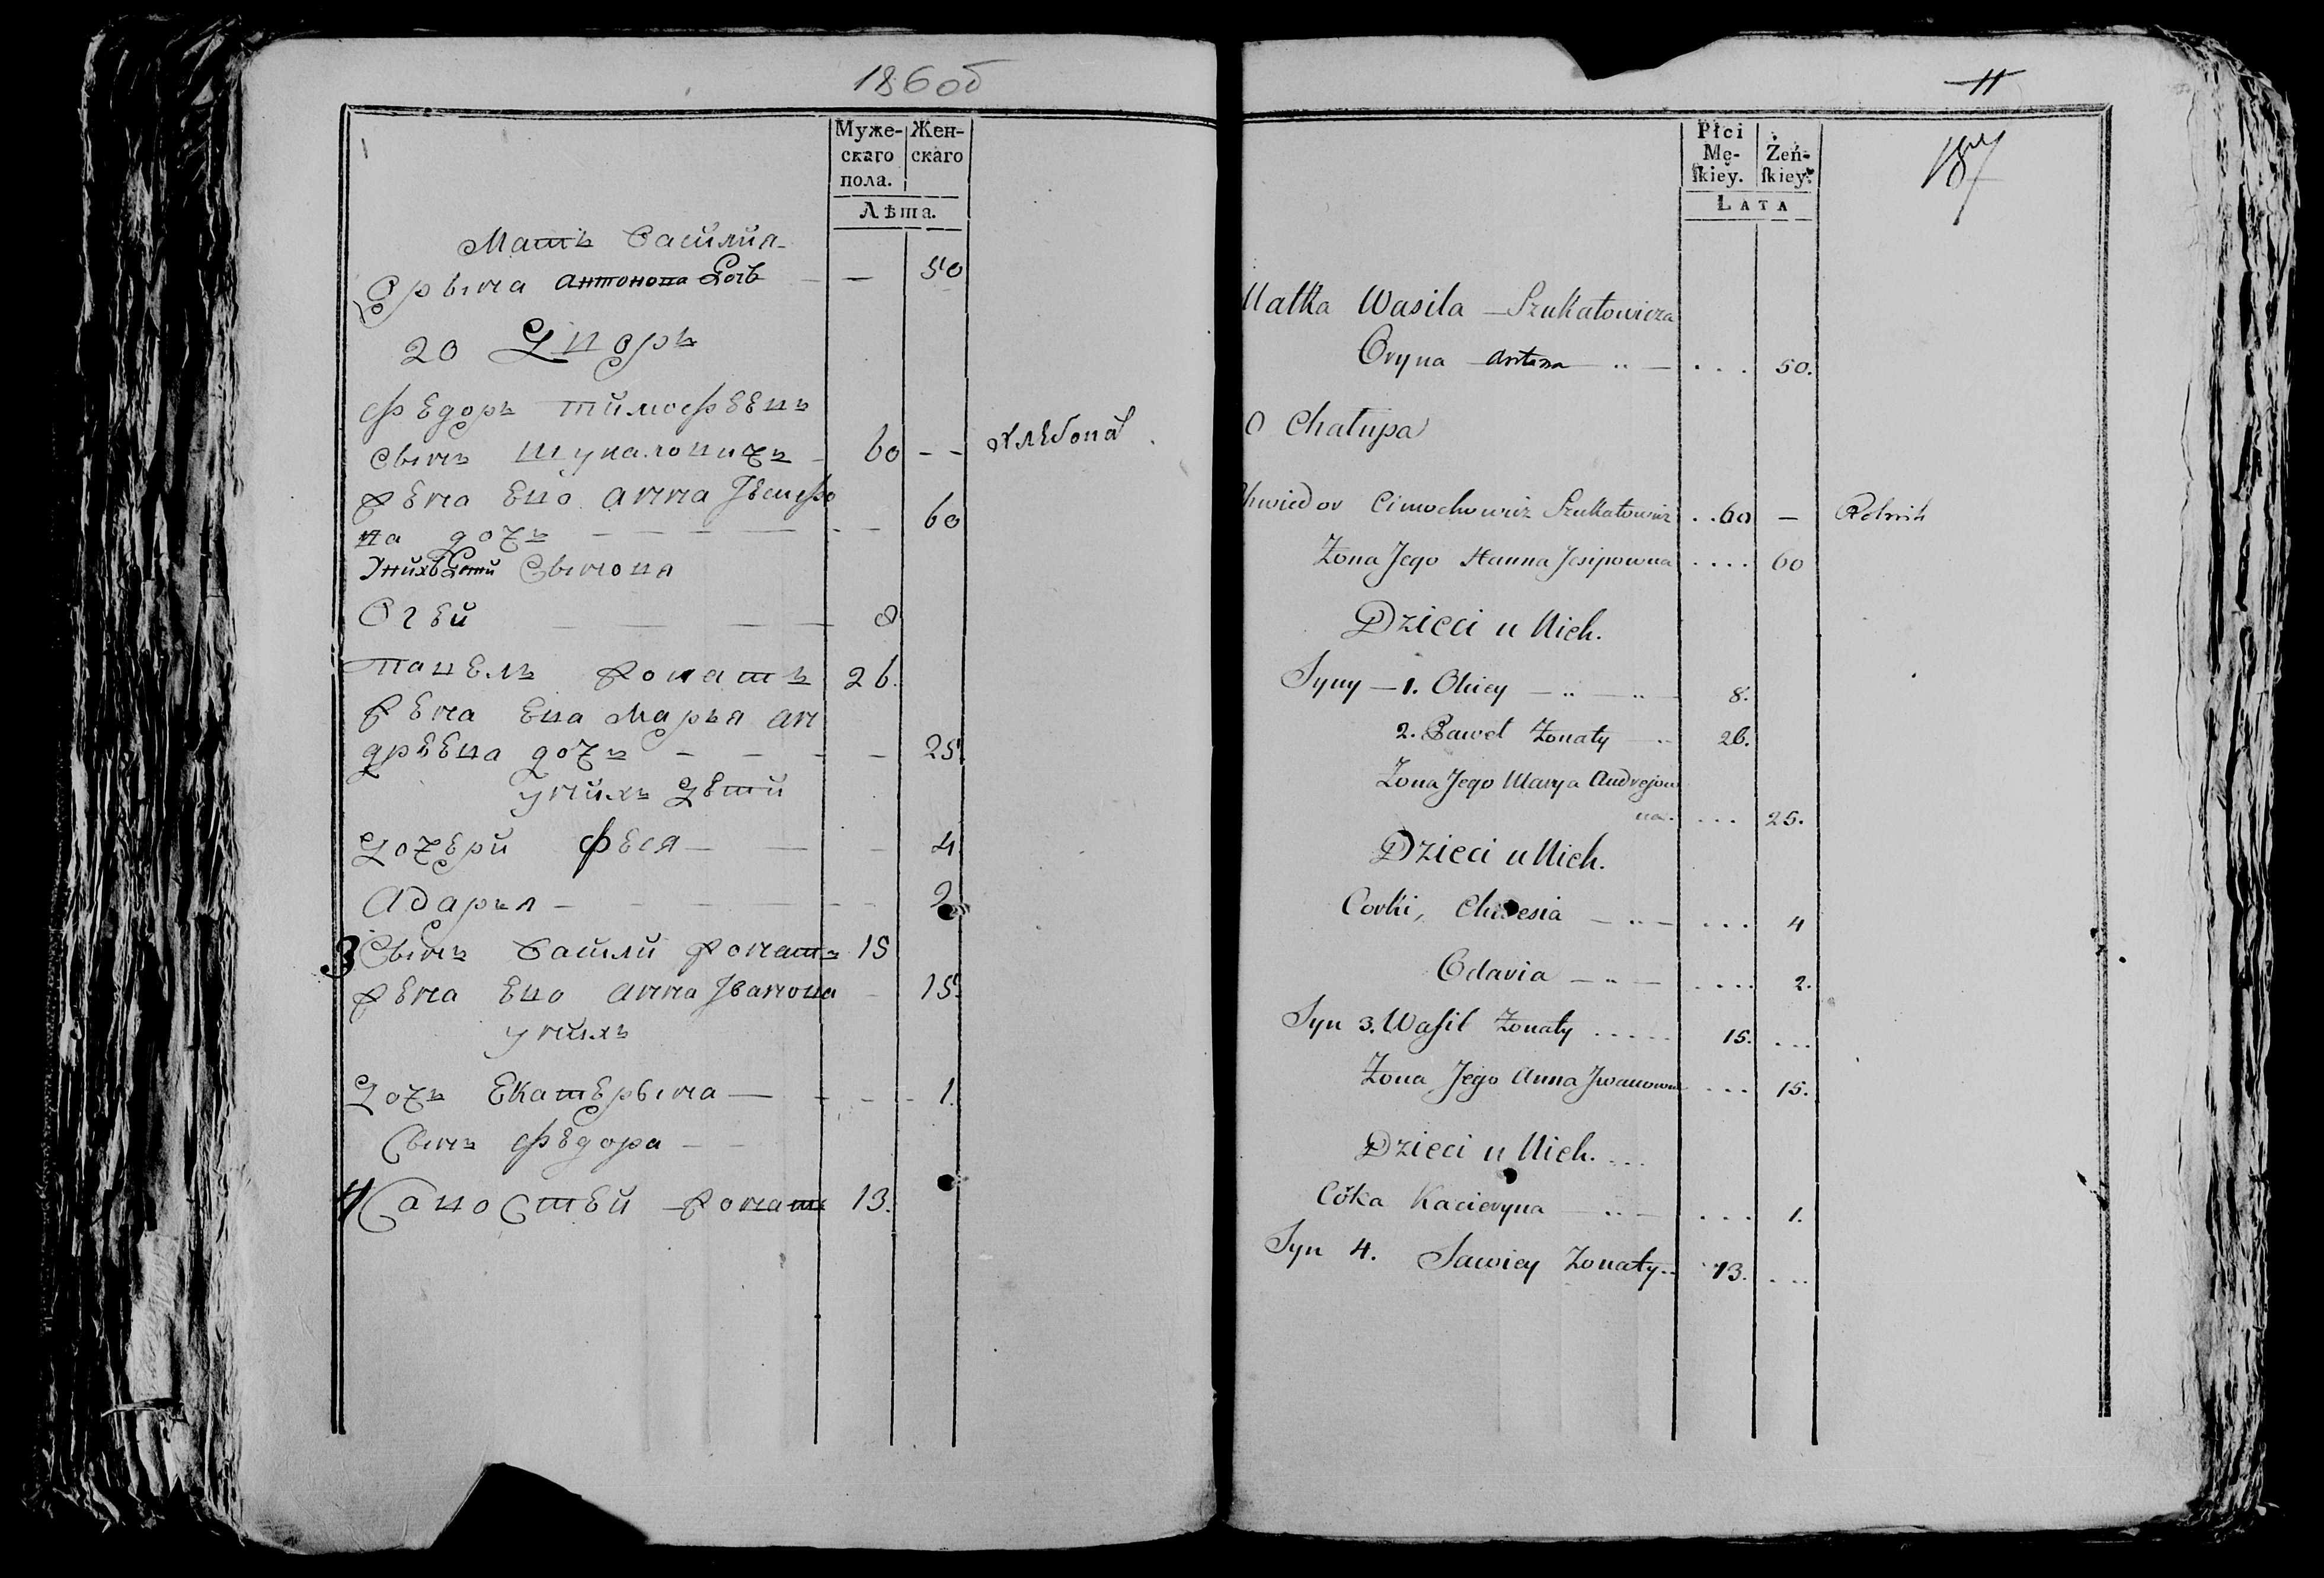 186об
Муже-
скаго
пола.
Жен-
скаго
Лѣта.
Мать Василия
Орына Антонова Дочь — — 50
20 Дворъ
Федоръ Тимофѣевъ
Сынъ Шукаловичъ 60 - - Хлебопа
Жена Ево Анна Јѣсифо
ва дочь — — — — - - 60
Унихъ Дѣти Сынова
Огей — — — — 8
Павелъ Жонатъ 26.
Жена Ева Марья Ан
дрѣева дочь - - - - 25
Унихъ Дѣти
Дочери Феся — — - 4
Адарья - - - - - - 2
3 Сынъ Васили Жонатъ 15
Жена Ево Анна Јванова - 15.
Унихъ
Дочь Екатерына — - - - 1.
Сынъ Федора - -
4 Савостей Жонатъ 13.
11
187
Płci
Mę-
ſkiey.
Żeń-
ſkiey.
LATA
Matka Wasila — Szukałowicza
Oryna Antona .. — ... 50.
0 Chałupa
Chwiedor Cimochowicz Szukałowicz .. 60 — Rolnik
Żona Jego Hanna Jesipowna .... 60
Dzieci u Nich.
Syny — 1. Ohiey — .. — .. — 8.
2. Paweł Żonaty — .. 26.
Żona Jego Marya Andrejow
na. ... 25.
Dzieci u Nich.
Corki, Chwesia — .. — ... 4
Odaria — .. — .... 2.
Syn 3. Waſil Żonaty ..... 15. ...
Żona Jego Anna Jwanowna ... 15.
Dzieci u Nich. ...
Córka Kacieryna — .. — ... 1.
Syn 4. Sawiey Żonaty.. 13. ...